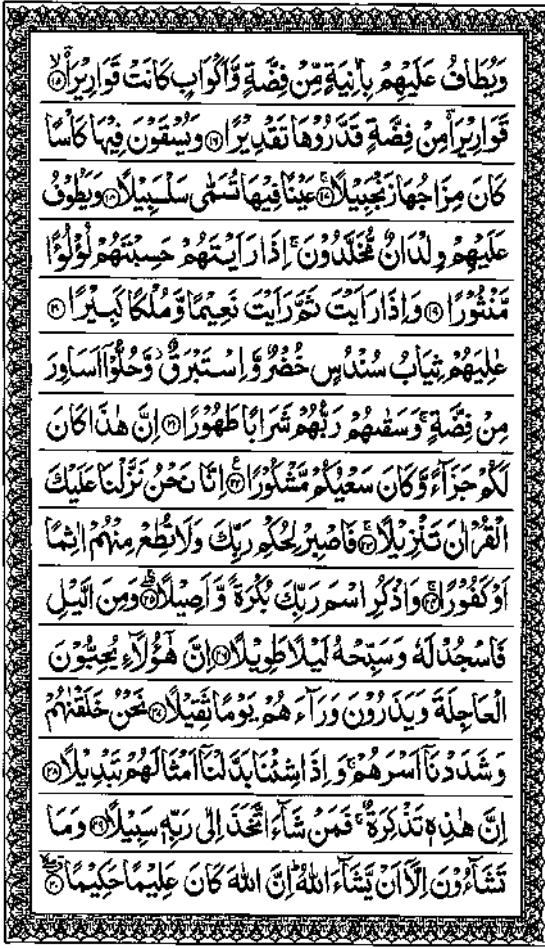 وَيُطَافُ عَلَيْهِمْ بِاٰنِيَةٍ مِّنْ فِضَّةٍ وَّاَكْوَابٍ كَانَتْ قَوَارِيْرَا۠ ۙ‏﴿۱۵﴾
قَوَارِيْرَا۠ مِنْ فِضَّةٍ قَدَّرُوْهَا تَقْدِيْرًا ﴿۱۶﴾ وَيُسْقَوْنَ فِيْهَا كَاْسًا
كَانَ مِزَاجُهَا زَنْجَبِيْلًا ۚ﴿۱۷﴾ عَيْنًا فِيْهَا تُسَمّٰى سَلْسَبِيْلًا ﴿۱۸﴾ وَيَطُوْفُ
عَلَيْهِمْ وِلْدَانٌ مُّخَلَّدُوْنَ ۚ اِذَا رَاَيْتَهُمْ حَسِبْتَهُمْ لُؤْلُؤًا
مَّنْثُوْرًا ﴿۱۹﴾ وَاِذَا رَاَيْتَ ثَمَّ رَاَيْتَ نَعِيْمًا وَّمُلْكًا كَبِيْرًا ﴿۲۰﴾
عٰلِيَهُمْ ثِيَابُ سُنْدُسٍ خُضْرٌ وَّاِسْتَبْرَقٌ ۡ وَّحُلُّوْۤا اَسَاوِرَ
مِنْ فِضَّةٍ ۚ وَسَقٰىهُمْ رَبُّهُمْ شَرَابًا طَهُوْرًا ﴿۲۱﴾ اِنَّ هٰذَا كَانَ
لَكُمْ جَزَآءً وَّكَانَ سَعْيُكُمْ مَّشْكُوْرًا ﴿۲۲﴾ اِنَّا نَحْنُ نَزَّلْنَا عَلَيْكَ
الْقُرْاٰنَ تَنْزِيْلًا ۚ﴿۲۳﴾ فَاصْبِرْ لِحُكْمِ رَبِّكَ وَلَا تُطِعْ مِنْهُمْ اٰثِمًا
اَوْ كَفُوْرًا ۚ﴿۲۴﴾ وَاذْكُرِ اسْمَ رَبِّكَ بُكْرَةً وَّاَصِيْلًا ۖ﴿۲۵﴾ وَمِنَ الَّيْلِ
فَاسْجُدْ لَهٗ وَسَبِّحْهُ لَيْلًا طَوِيْلًا ﴿۲۶﴾ اِنَّ هٰۤؤُلَآءِ يُحِبُّوْنَ
الْعَاجِلَةَ وَيَذَرُوْنَ وَرَآءَهُمْ يَوْمًا ثَقِيْلًا ﴿۲۷﴾ نَحْنُ خَلَقْنٰهُمْ
وَشَدَدْنَاۤ اَسْرَهُمْ ۚ وَاِذَا شِئْنَا بَدَّلْنَاۤ اَمْثَالَهُمْ تَبْدِيْلًا ﴿۲۸﴾
اِنَّ هٰذِهٖ تَذْكِرَةٌ ۚ فَمَنْ شَآءَ اتَّخَذَ اِلٰى رَبِّهٖ سَبِيْلًا ﴿۲۹﴾ وَمَا
تَشَآءُوْنَ اِلَّاۤ اَنْ يَّشَآءَ اللّٰهُ ؕ اِنَّ اللّٰهَ كَانَ عَلِيْمًا حَكِيْمًا ﴿۳۰﴾